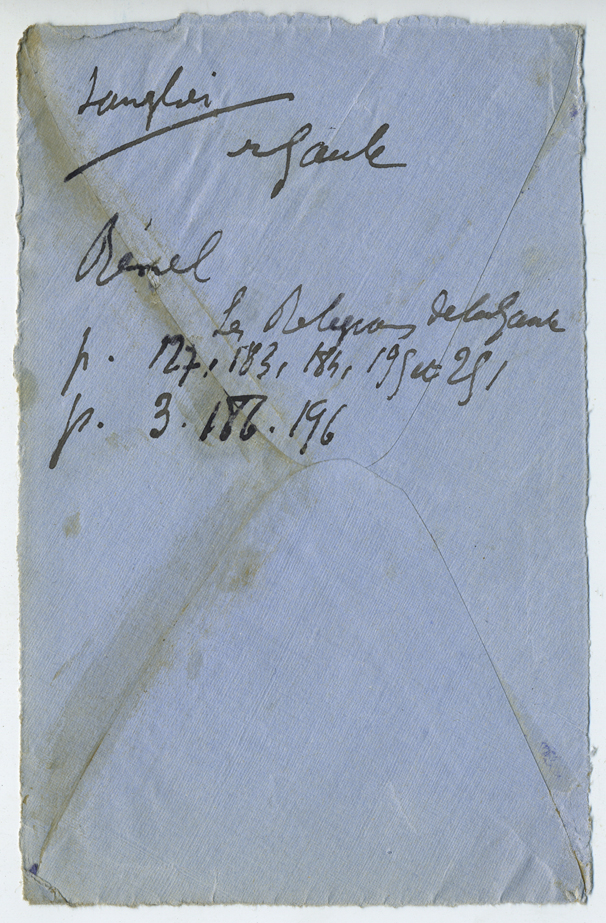 Sanglier
en Gaule
Rénel
Les Religions de la Gaule
p. 127, 183, 184, 195 et 251
p. 3. 186. 196